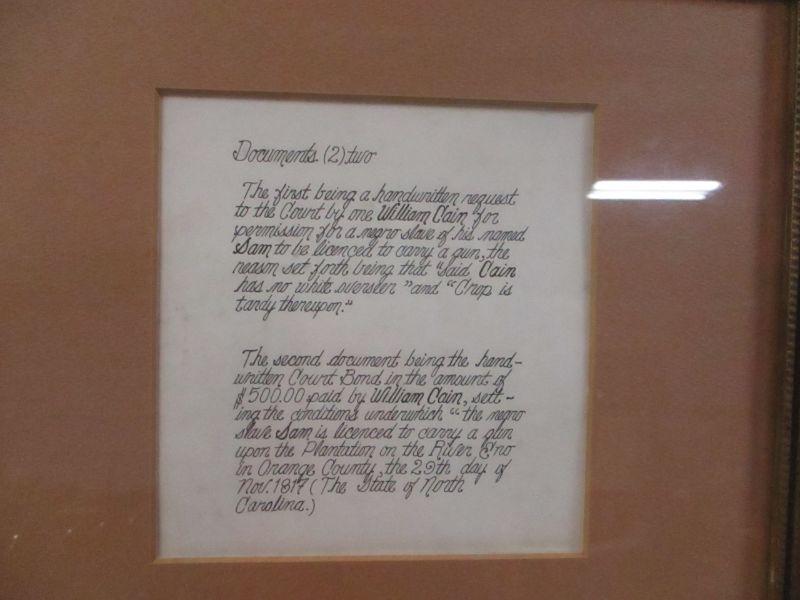 Documents (2) two
The first being a handwritten request
to the Court by one William Cain for
permission for a negro slave of his named
Sam to be licenced to carry a gun, the
reason set forth being that "said Cain
has no white overseer" and "Crop is
tardy thereupon."
The second document being the hand-
written Court Bond in the amount of
$500.00 paid by William Cain, sett-
ing the conditions underwhich "the negro
slave Sam is licenced to carry a gun
upon the Plantation on the River Eno
in Orange County, the 29th day of
Nov. 1817 (The State of North
Carolina.)